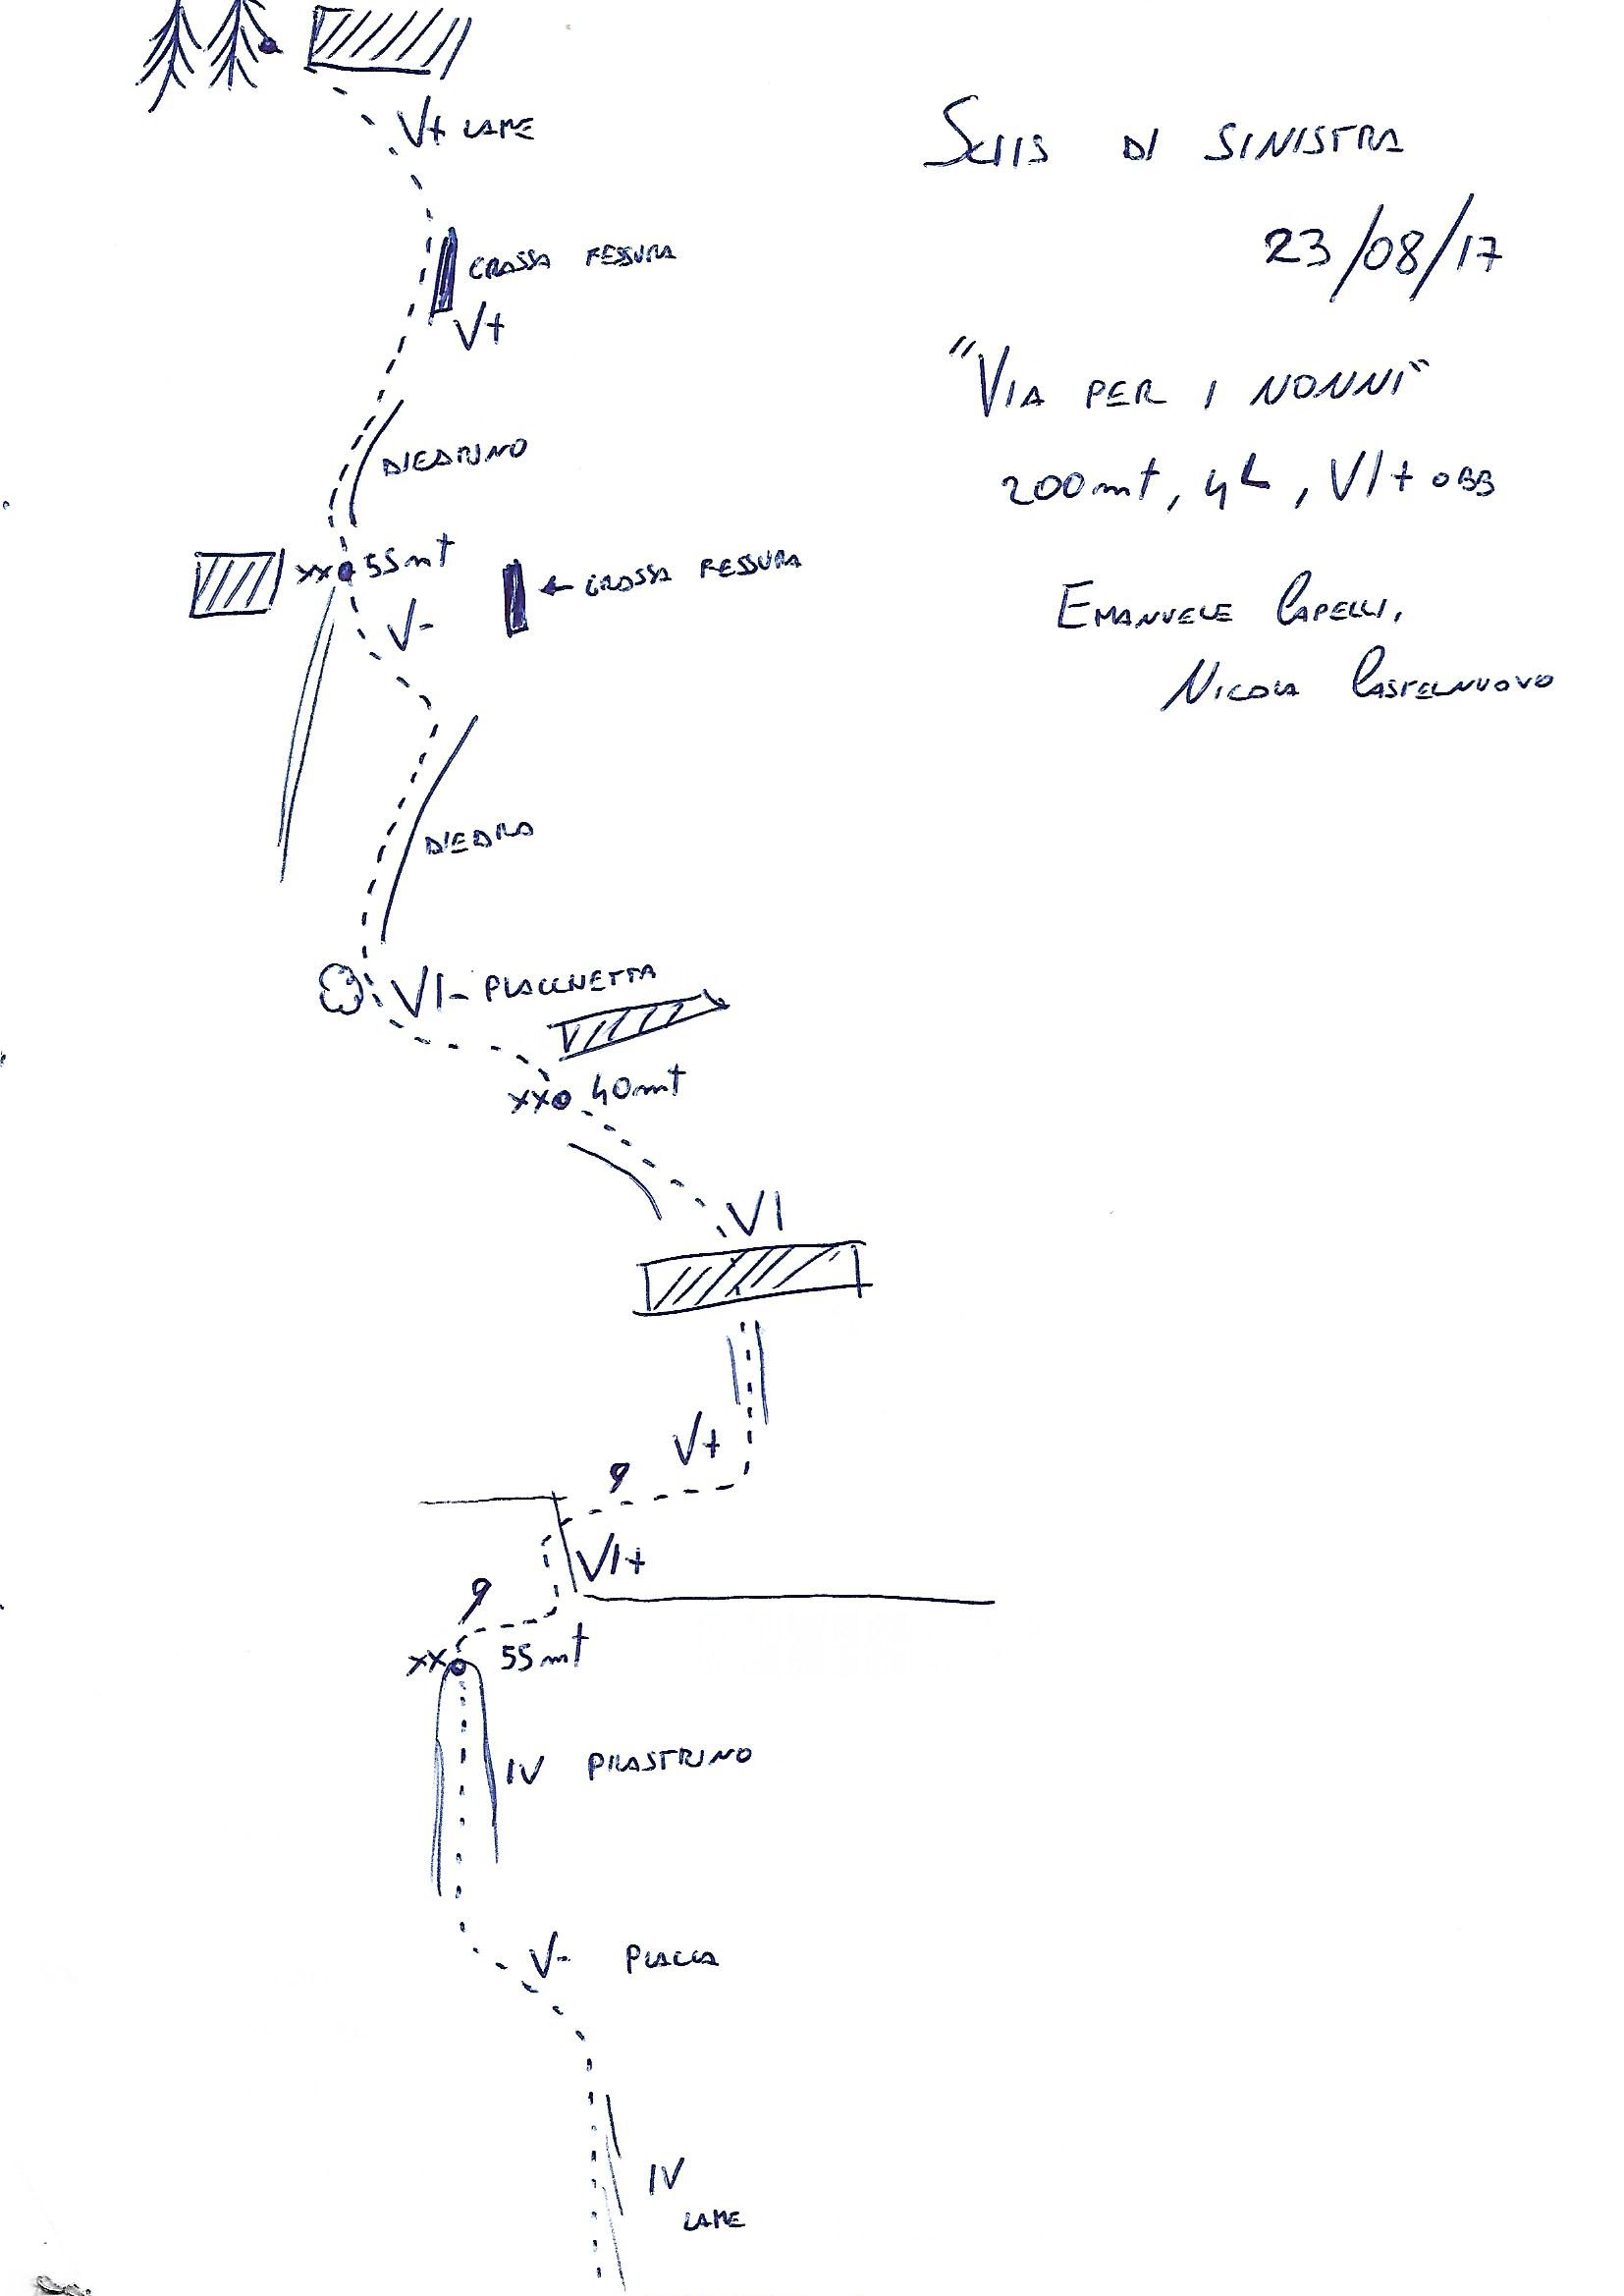 V+ LAME
SCIIS DI SINISTRA
23/08/17
GROSSA FESSURA
V+
"VIA PER I NONNI"
200mt, 4L, VI+ OBB
DIEDRINO
xx 55mt
GROSSA FESSURA
V-
EMANUELE CAPELLI,
NICOLA CASTELNUOVO
DIEDRO
VI- PLACCHETTA
xx 40mt
VI
V+
VI+
xx 55mt
IV PILASTRINO
V- PLACCA
IV
LAME